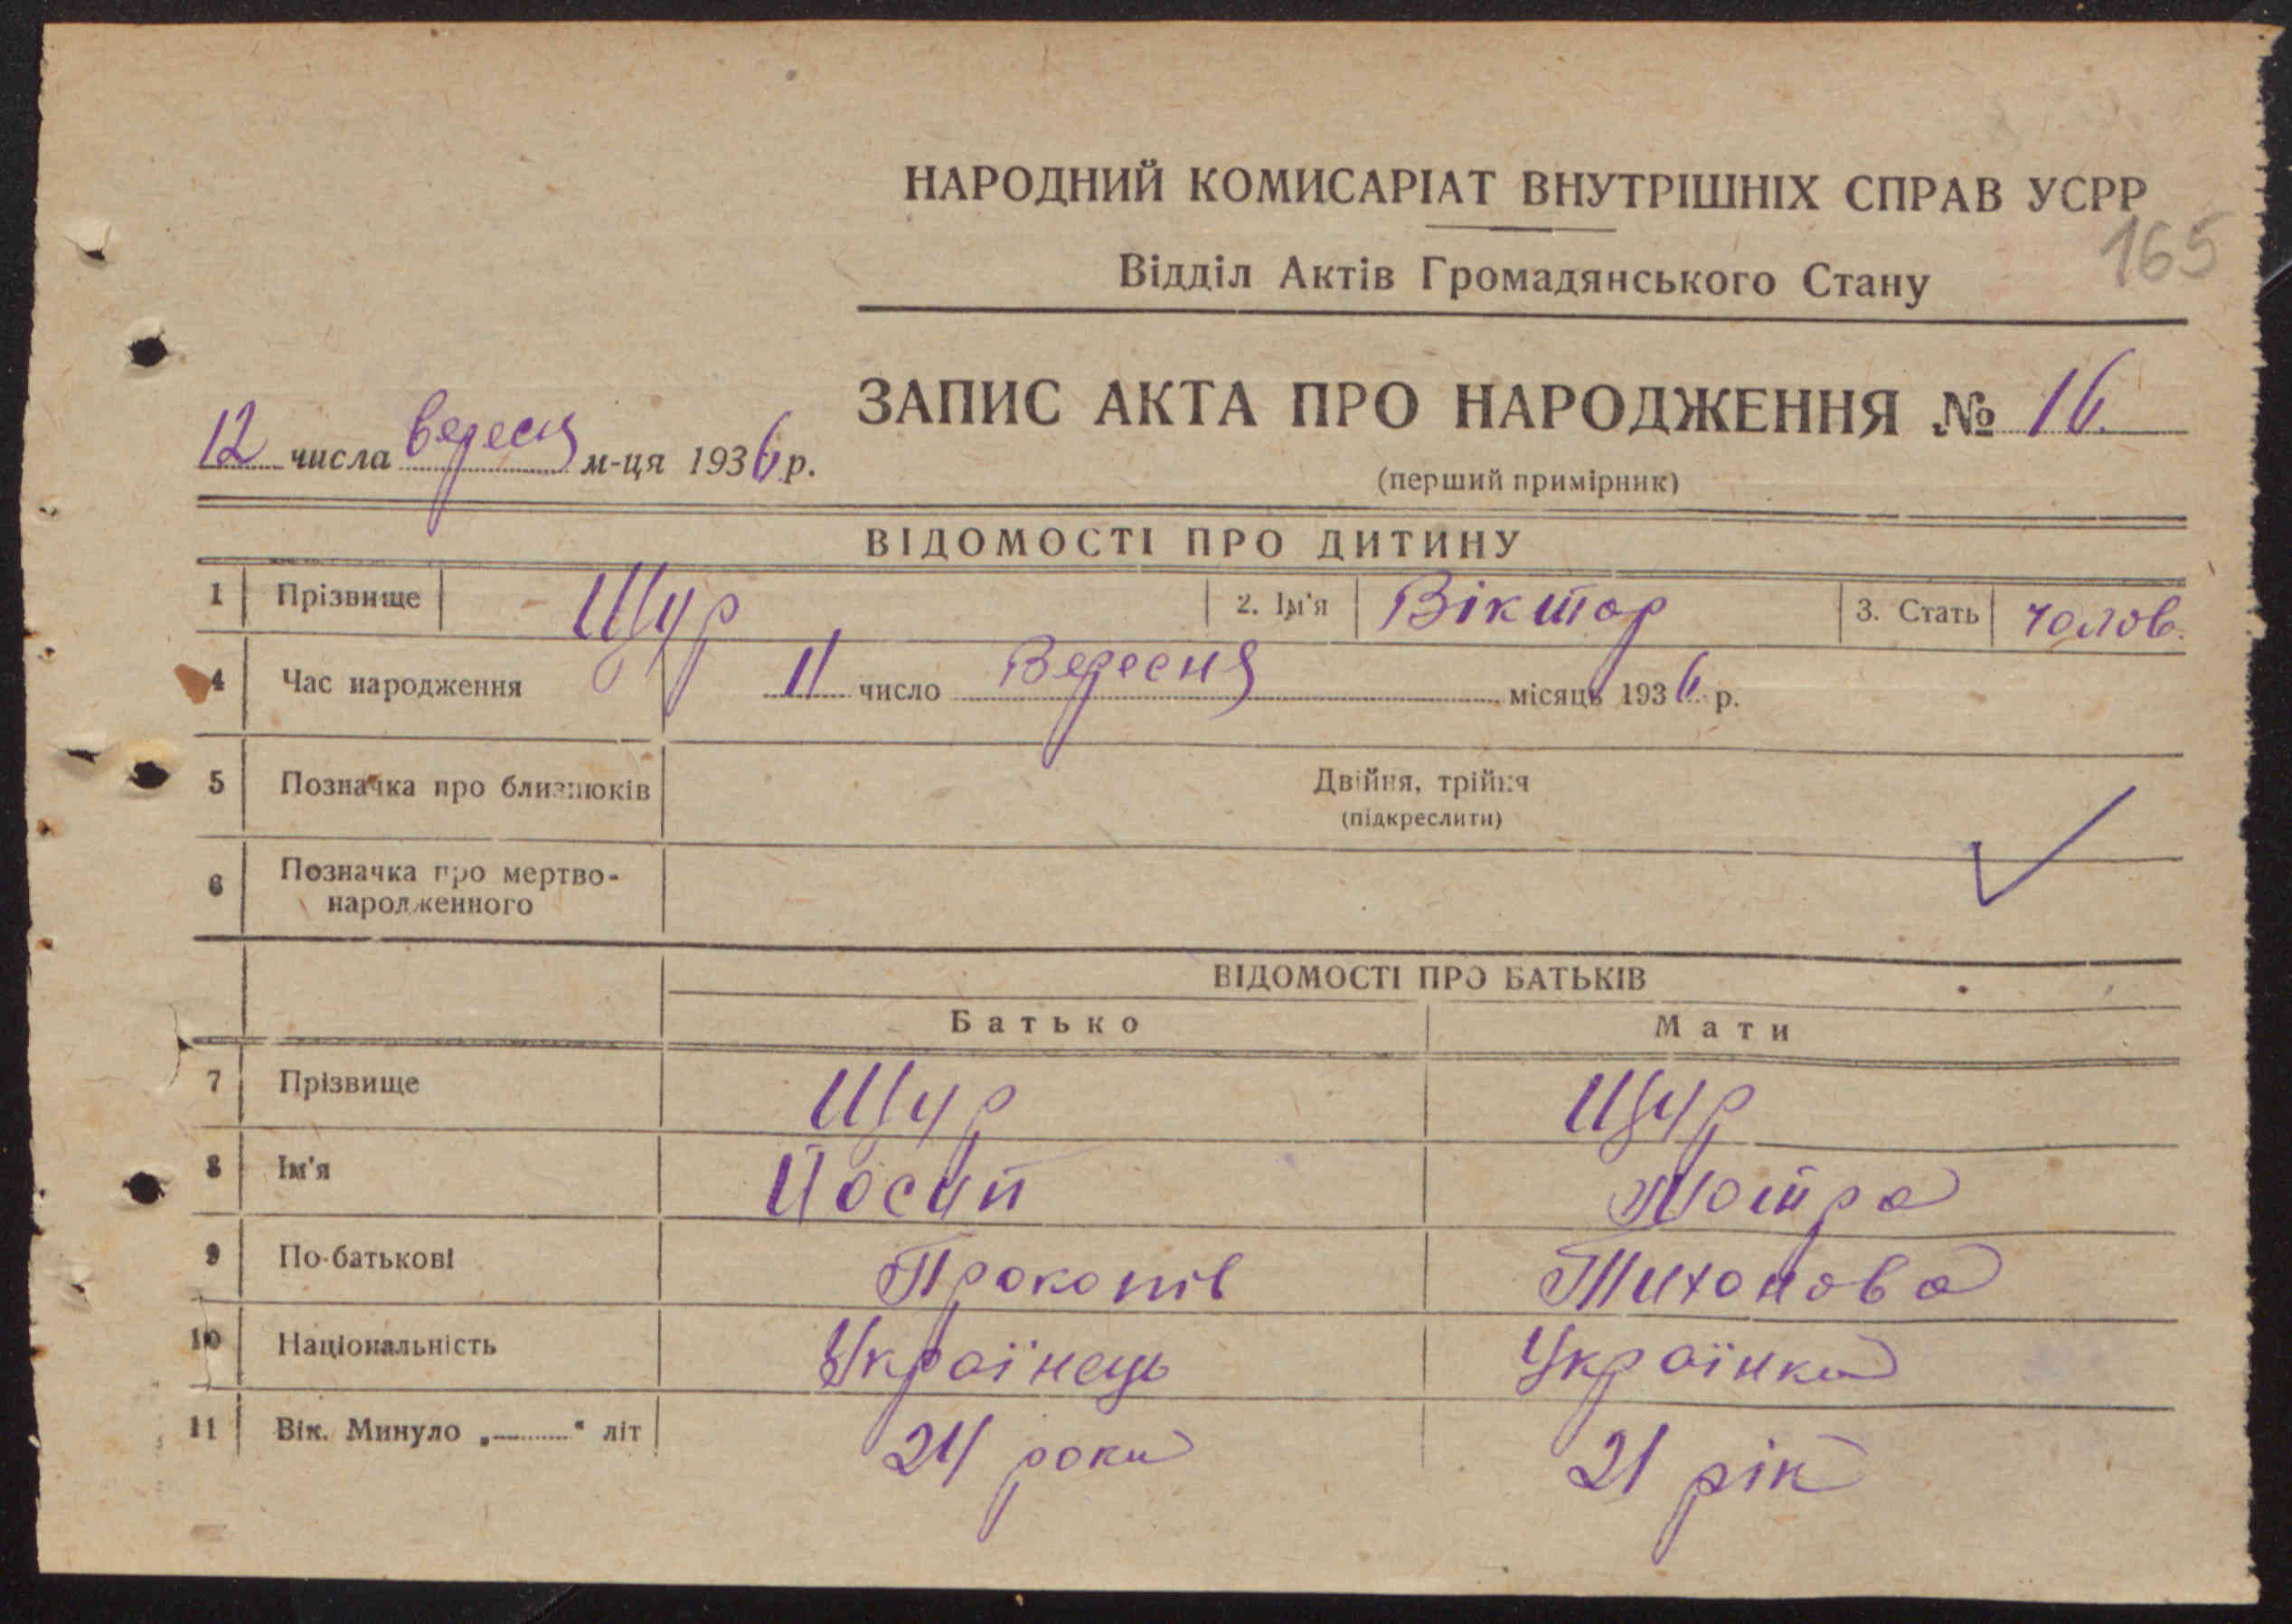 НАРОДНИЙ КОМИСАРІАТ ВНУТРІШНІХ СПРАВ УСРР
165
Відділ Актів Громадянського Стану
ЗАПИС АКТА ПРО НАРОДЖЕННЯ № 16.
12 числа вересня м-ця 1936 р.
(перший примірник)
ВІДОМОСТІ ПРО ДИТИНУ
1 Прізвище Щур 2. Ім'я Віктор 3. Стать чолов.
4 Час народження 11 число Вересня місяць 1936 р.
5 Позначка про близнюків Двійня, трійня
(підкреслити)
6 Позначка про мертво-
народженного
ВІДОМОСТІ ПРО БАТЬКІВ
Батько Мати
7 Прізвище Щур Щур
8 Ім'я Йосип Мотра
9 По-батькові Прокопів Тихонова
10 Національність Українець Українка
11 Вік. Минуло „ “ літ 24 роки 21 рік